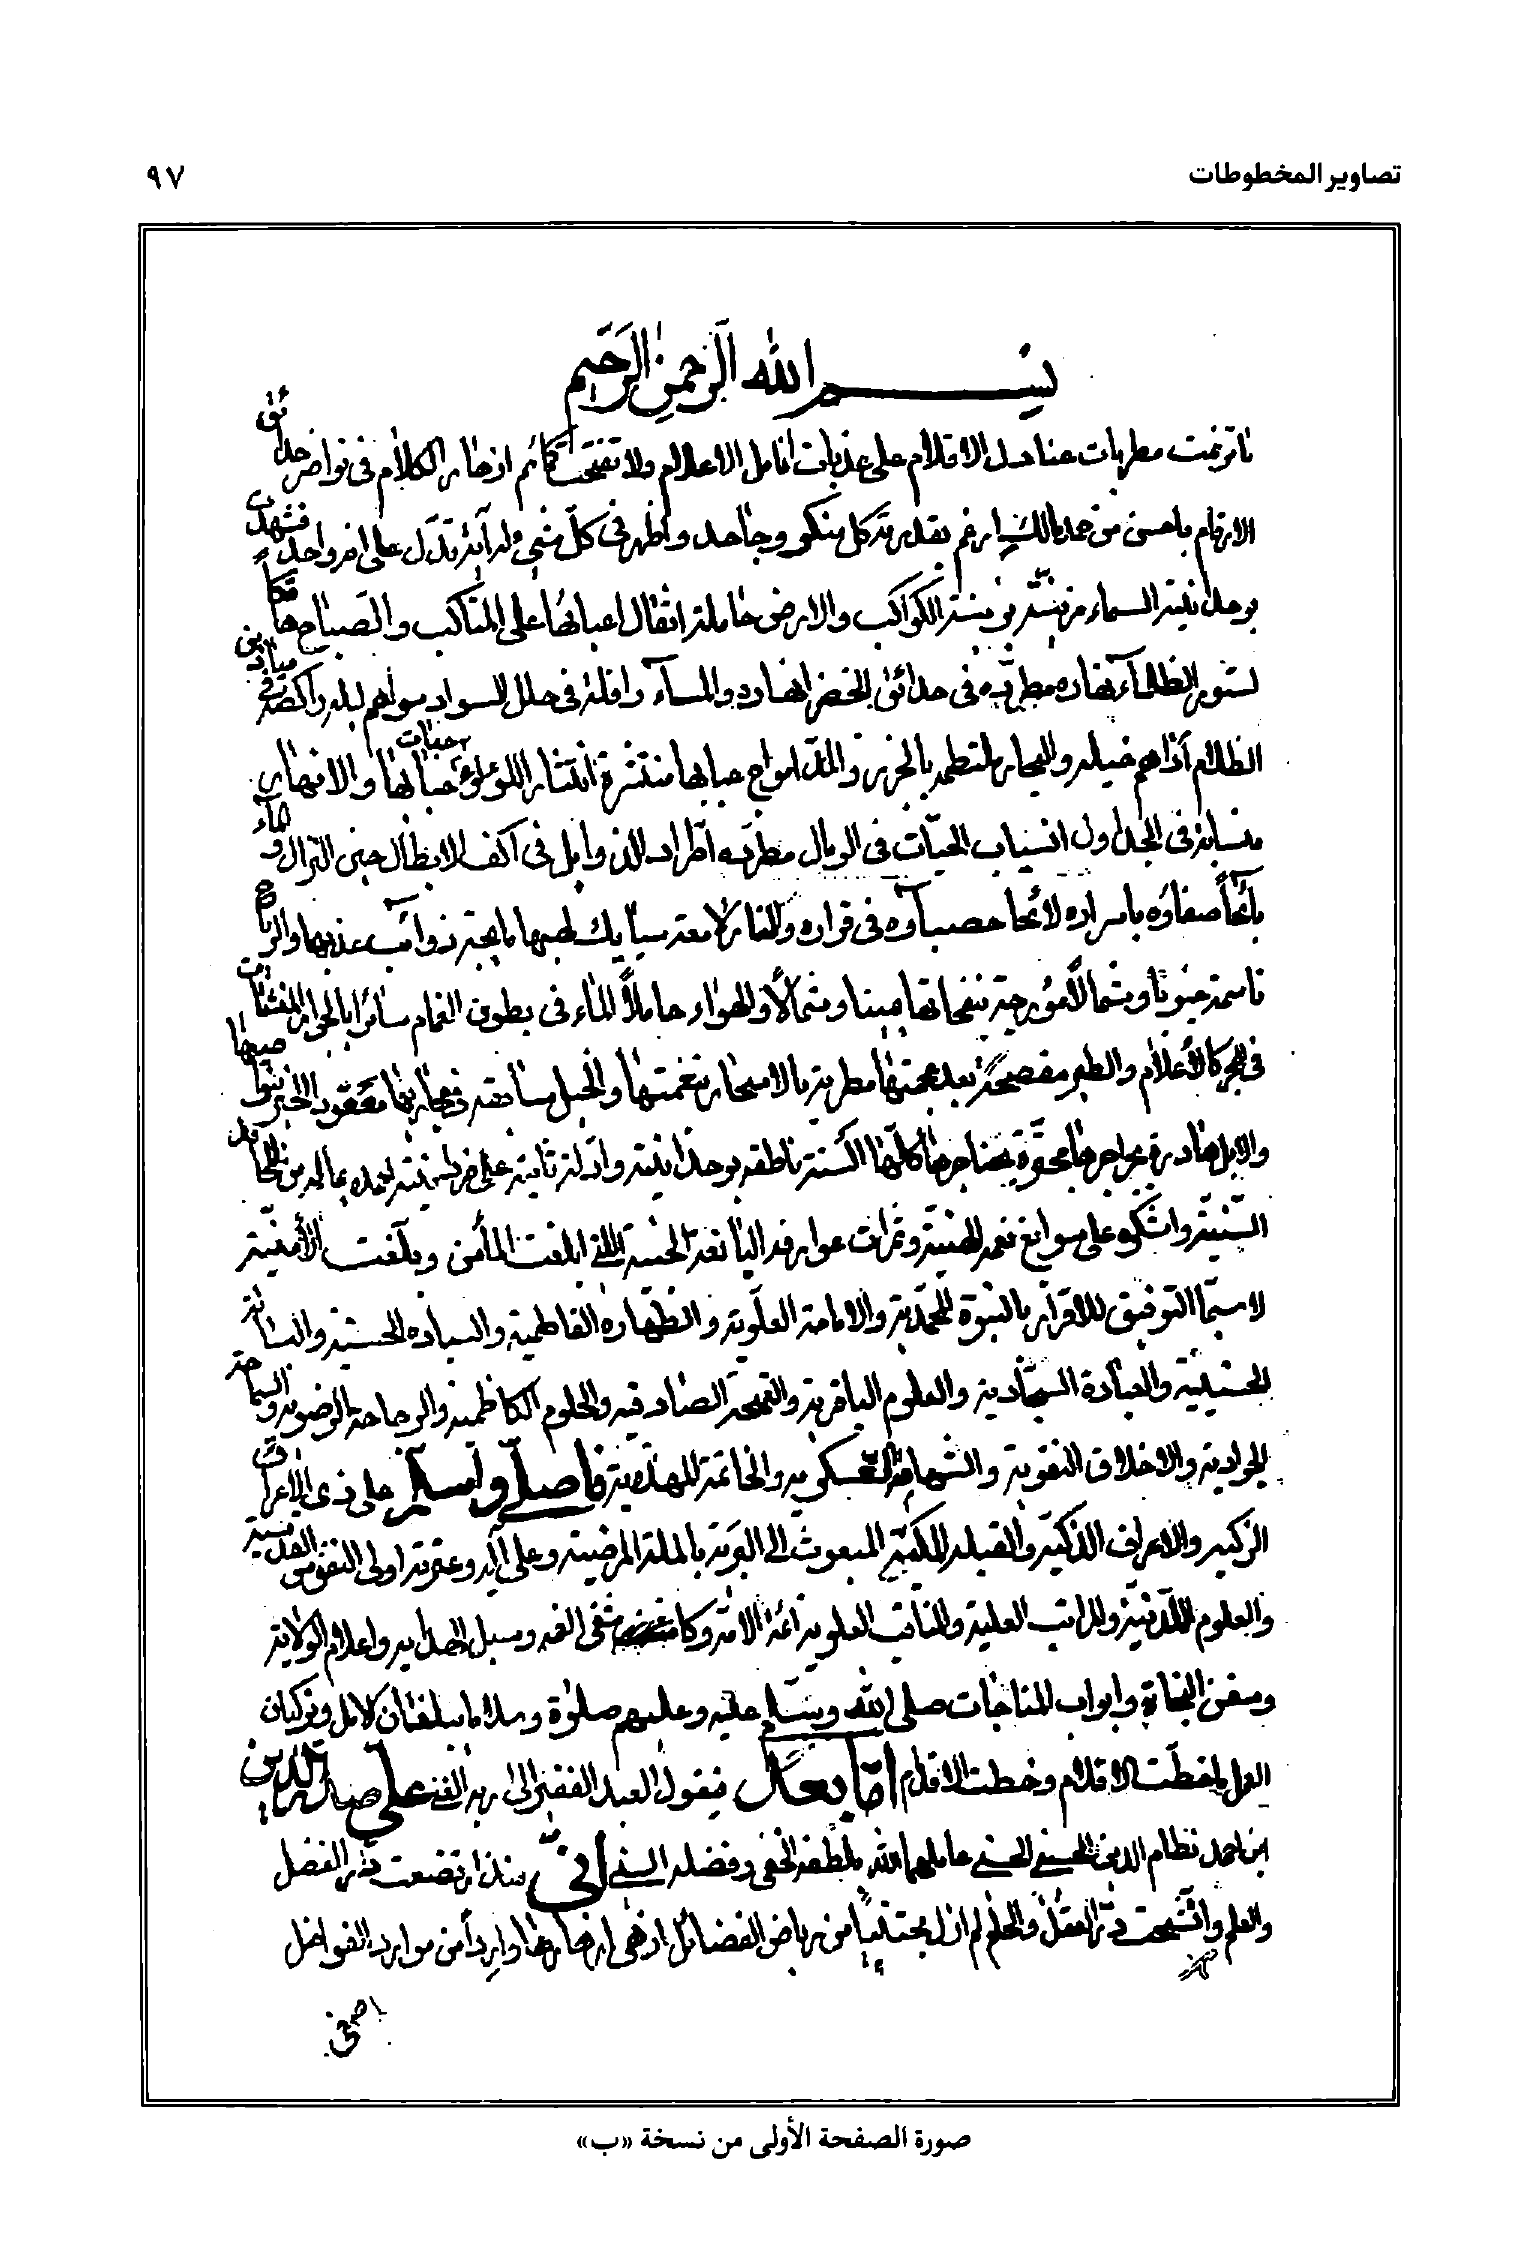 تصاوير المخطوطات ٩٧
بسم الله الرحمن الرحيم
ما ترنمت مطربات عنادل الاقلام على عذبات انامل الاعلام ولا تفتحت كمائم ازهار الكلام فى نواضر حدائق
الارقام باحسن من حمد مالك ارغم بقدرته كل منكر وجاحد واظهر فى كل شىء له آية تدل على انه واحد فشهدت
بوحدانيته السماء مزينة بزينة الكواكب والارض حاملة اثقال اعبائها على المناكب والصباح هاتكا
لستور الظلماء نهاره مطربه فى حدائق الخضر انهاره والمساء رافلة فى حلل السواد سواهم ليله راكضة فى ميادين
الظلام ادهم خيله والبحار ملتطمة بالجزر والمد امواج عبابها منتثرة انتثار اللؤلؤ حبات حبابها والانهار
منسابة فى الجداول انسياب الحيات فى الرمال مطردة اطراد الذوابل فى اكف الابطال حين النزال والماء
بائحا صفاؤه باسراره لائحا حصباؤه فى قراره والنار لامعة سبائك لهبها ذوائب عذبها والرياح
ناسمة جنوبا وشمالا مؤرجة بنفحاتها يمينا وشمالا والهواء حاملا الماء فى بطون الغمام سائرا بالجوار المنشآت
فى البحر كالاعلام والطير مفصحة بعد عجمتها مطربة بالاسحار بنغمتها والخيل سابقة معقود الخير بنواصيها
والابل هادرة كلها السنة ناطقة بوحدانيته وادلة ثابتة على نحمده بماله من المحامد
السنية واشكره على سوابغ نعمه الهنية وثمرات عوارفه اليانعة الجنية اللتى ابلغت المأمن وبلغت الأمنية
لا سيما التوفيق للاقرار بالنبوة المحمدية والامامة العلوية والطهارة الفاطمية والسيادة الحسنية والبسالة
الحسينية والعبادة السجادية والعلوم الباقرية والصادقية والحلوم الكاظمية الرضوية والسماحة
الجوادية والاخلاق النقوية والشهامة العسكرية والخاتمة المهدية فاصلى واسلم على ذى الاعراق
الزكية والاعراف الذكية والقبلة المكية المبعوث الى البرية بالملة المرضية وعلى آله وعترته اولى النفوس القدسية
والعلوم اللدنية والمراتب العلية والمناقب العلوية ائمة الامة وكاشفى الغمة وسبل الهداية واعلام الولاية
وسفن النجاة وابواب المناجات صلى الله وسلم عليه وعليهم صلوة وسلاما يبلغان الامل ويزكيان
العمل ما خطت الاقلام وخطت الاقدام اما بعد فيقول العبد الفقير الى ربه الغنى على صدر الدين
ابن احمد نظام الدين الحسينى الحسنى عاملهما الله بلطفه الخفى وفضله السنى انى منذ ارتضعت در الفضل
والعلم واتشحت در العقل والحلم لم ازل مجتنيا من رياض الفضائل ازهى ازهارها واردا من موارد الفواضل
اصفى
صورة الصفحة الأولى من نسخة «ب»